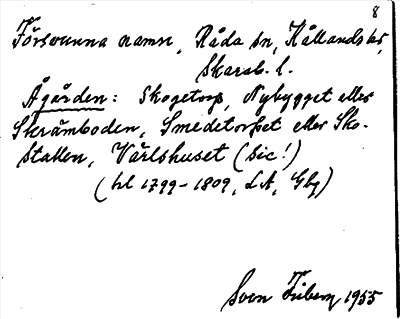 8
Försvunna namn, Råda sn, Kållands hd,
Skarab. l.
Ågården: Skogetorp, Nybygget eller
Skrämboden, Smedetorpet eller Sko-
stallen, Värlshuset (sic!)
(hl 1799-1809, LA, Gbg)
Sven Friberg 1955